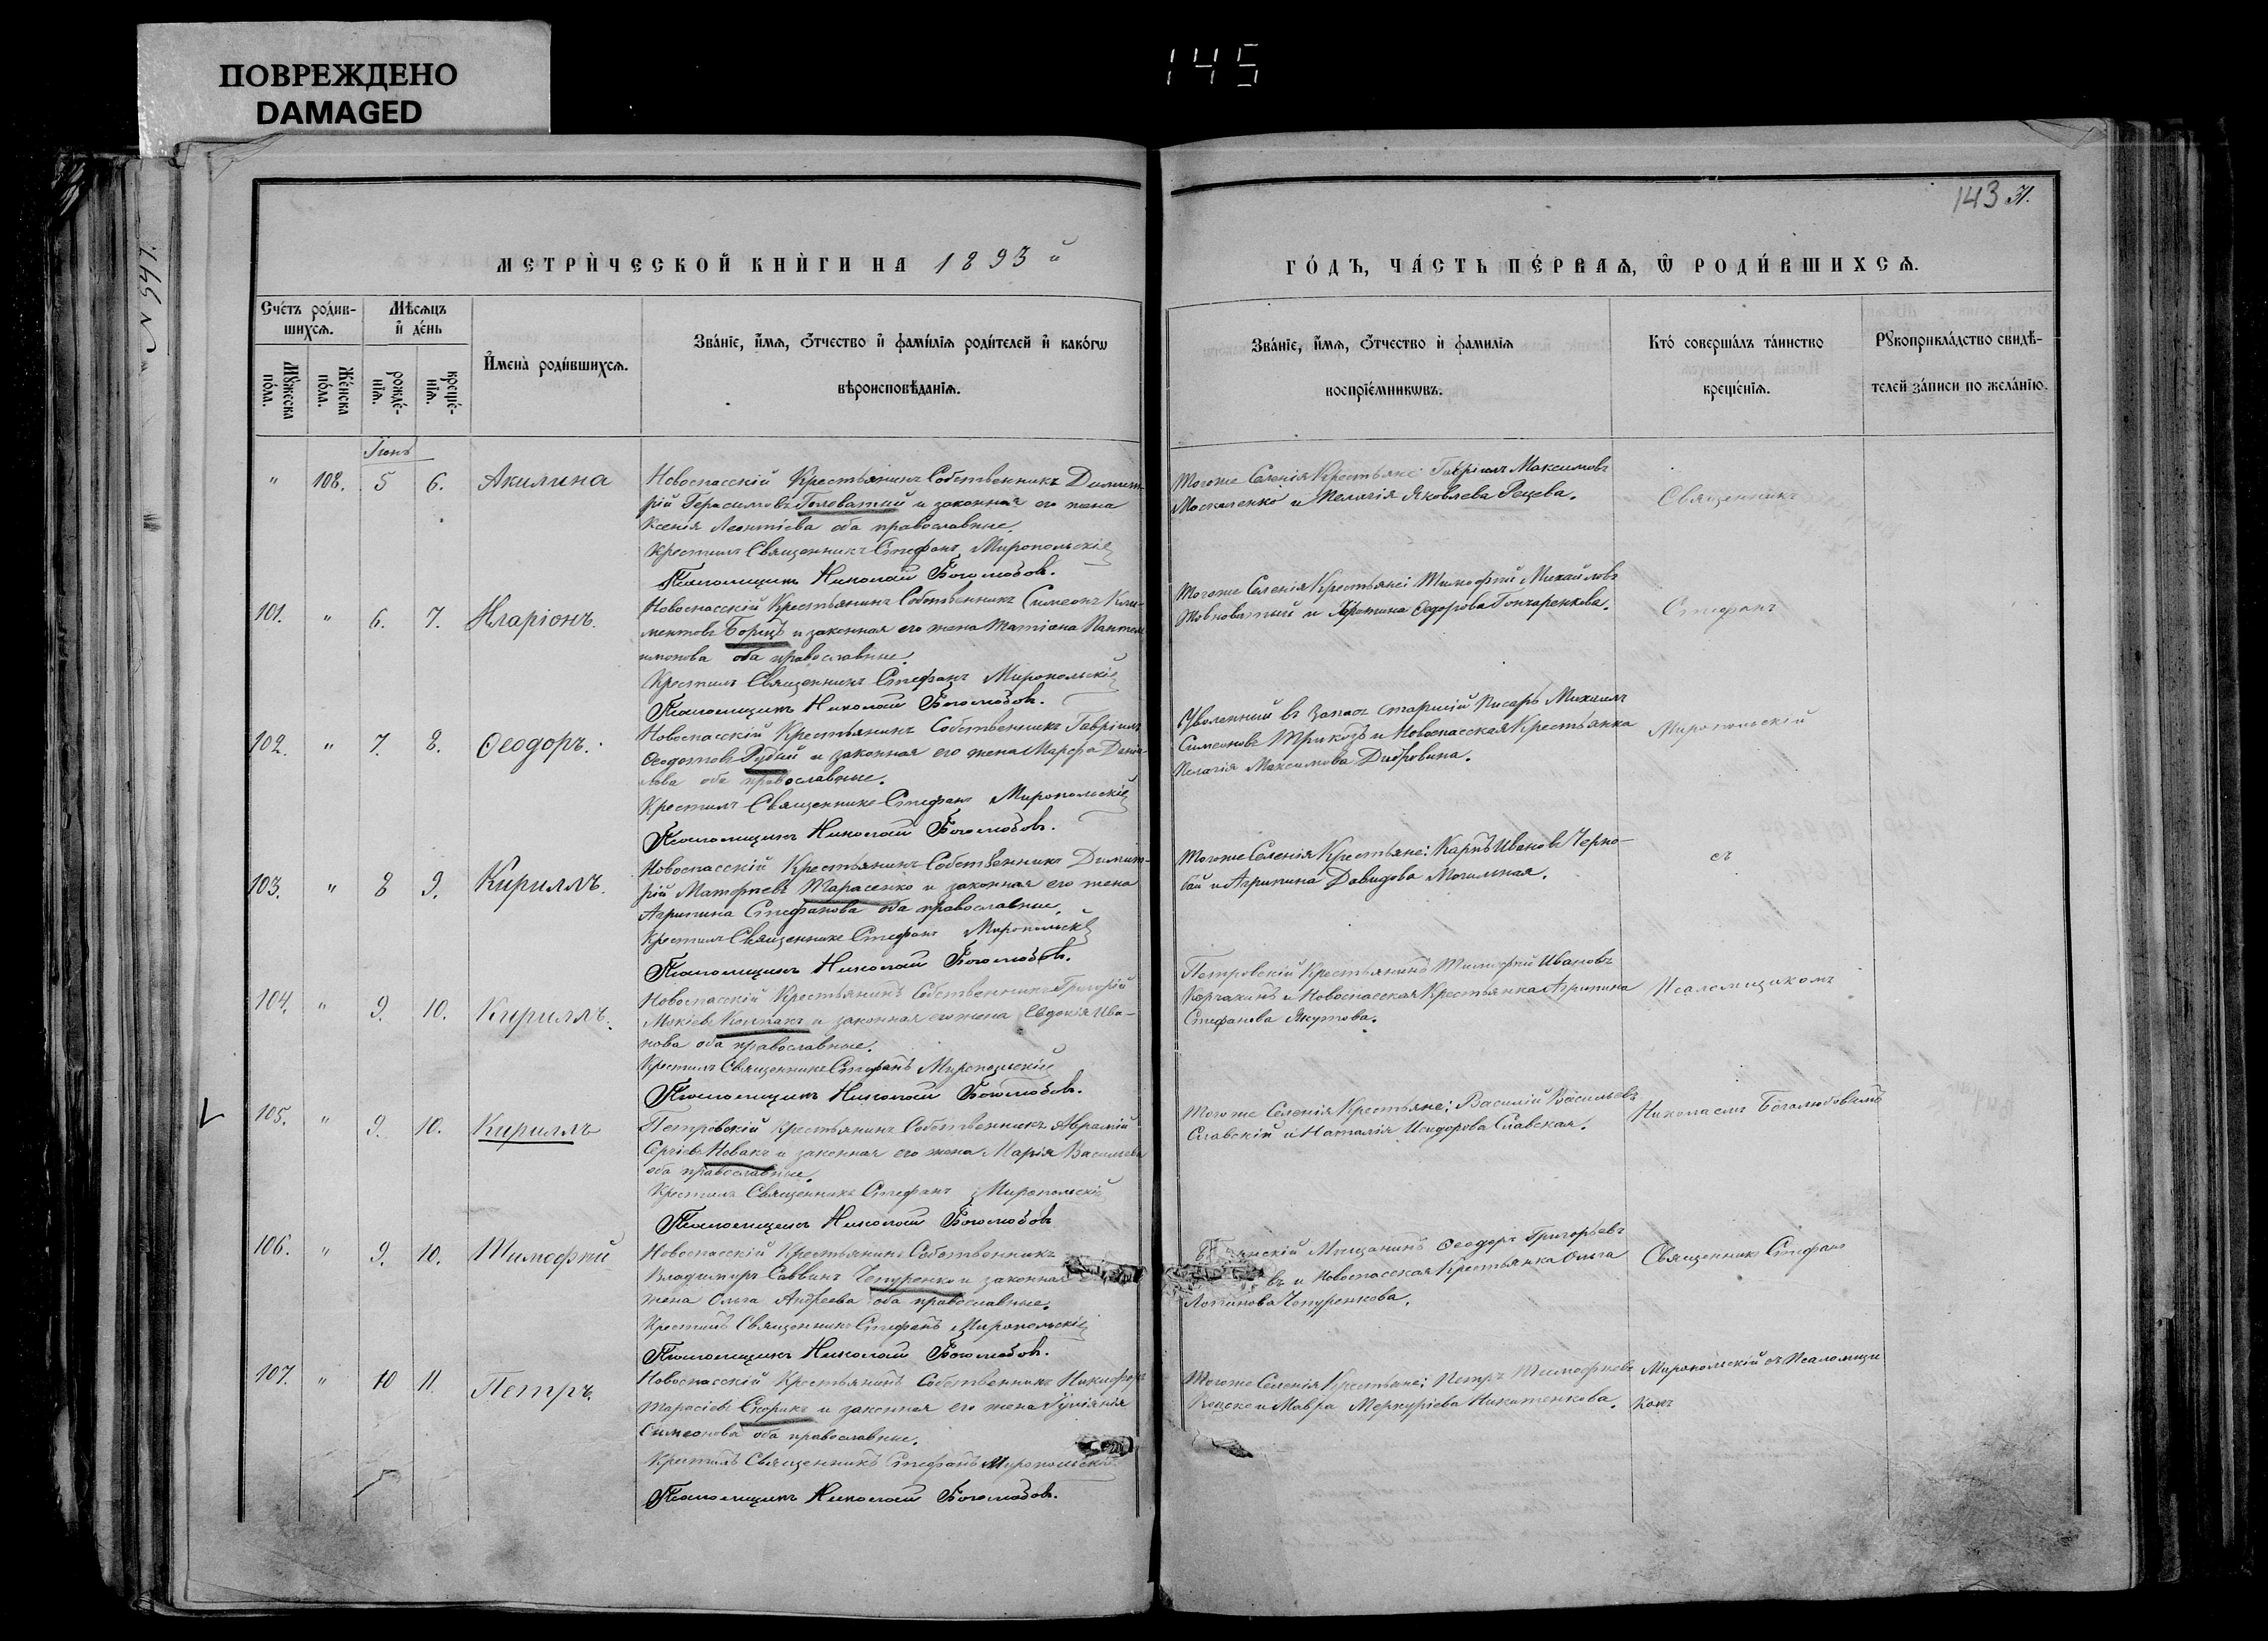 ПОВРЕЖДЕНО
DAMAGED
145
N 547.
143 31.
МЕТРИ́ЧЕСКОЙ КНИ́ГИ НА 1893 й
ГО́ДЪ, ЧА́СТЬ ПЕ́РВАѦ, Ѡ РОДИ́ВШИХСѦ.
Сче́тъ роди́в-
шихсѧ.
Мѣ́сѧцъ
и҆ де́нь
Мꙋ́жеска
по́ла.
Же́нска
по́ла.
рожде́-
нїѧ.
креще́-
нїѧ.
И҆мена̀ роди́вшихсѧ.
Зва́нїе, и҆́мѧ, ѻ҆́тчество и҆ фами́лїѧ роди́телей и҆ како́гѡ
вѣроисповѣ́данїѧ.
Зва́нїе, и҆́мѧ, ѻ҆́тчество и҆ фами́лїѧ
воспрїе́мникѡвъ.
Кто̀ соверша́лъ та́инство
креще́нїѧ.
Рꙋкоприкла́дство свидѣ́-
телей за́писи по жела́нїю.
Іюнь
" 108. 5 6. Акилина
Новоспасскій Крестьянинъ Собственникъ Димит-
рій Герасимовъ Головатый и законная его жена
Ксенія Леонтіева оба православные.
Крестилъ Священникъ Стефанъ Миропольскій
Псаломщикъ Николай Боголюбовъ.
Тогоже Селенія Крестьяне: Гавріилъ Максимовъ
Москаленко и Пелагія Яковлева Рецева.
Священникъ
101. " 6. 7. Иларіонъ.
Новоспасскій Крестьянинъ Собственникъ Симеонъ Кли-
ментовъ Борщъ и законная его жена Татіана Пантел
имонова оба православные.
Крестилъ Священникъ Стефанъ Миропольскій
Псаломщикъ Николай Боголюбовъ.
Тогоже Селенія Крестьяне: Тимофей Михайловъ
Товковатый и Христина Ѳедорова Гончаренкова.
Стефанъ
102. " 7. 8. Ѳеодоръ.
Новоспасскій Крестьянинъ Собственникъ Гавріилъ
Ѳеодотовъ Рудый и законная его жена Марѳа Дани
лова оба православные.
Крестилъ Священникъ Стефанъ Миропольскій
Псаломщикъ Николай Боголюбовъ.
Уволенный въ Запасъ старшій Писарь Михаилъ
Симеоновъ Трикозъ и Новоспасская Крестьянка
Пелагія Максимова Дибровина.
Миропольскій
103. " 8 9. Кириллъ.
Новоспасскій Крестьянинъ Собственникъ Димит-
рій Матфеевъ Тарасенко и законная его жена
Агрипина Стефанова оба православные.
Крестилъ Священникъ Стефанъ Миропольскій
Псаломщикъ Николай Боголюбовъ.
Тогоже Селенія Крестьяне: Карпъ Ивановъ Черно-
бай и Агрипина Давидова Могильная.
съ
104. " 9. 10. Кириллъ.
Новоспасскій Крестьянинъ Собственникъ Григорій
Мокіевъ Колпакъ и законная его жена Евдокія Ива-
нова оба православные.
Крестилъ Священникъ Стефанъ Миропольскій
Псаломщикъ Николай Боголюбовъ.
Петровскій Крестьянинъ Тимофей Ивановъ
Корчакинъ и Новоспасская Крестьянка Агрипина
Стефанова Якутова.
Псаломщикомъ
105. " 9. 10. Кириллъ
Петровскій Крестьянинъ Собственникъ Аврамій
Сергіевъ Новакъ и законная его жена Марія Васильева
оба православные.
Крестилъ Священникъ Стефанъ Миропольскій
Псаломщикъ Николай Боголюбовъ
Тогоже Селенія Крестьяне: Василій Васильевъ
Славскій и Наталія Исидорова Славская.
Николаемъ Боголюбовымъ
106. " 9. 10. Тимофей
Новоспасскій Крестьянинъ Собственникъ
Владимиръ Саввинъ Чепуренко и законная
жена Ольга Андреева оба православные.
Крестилъ Священникъ Стефанъ Миропольскій
Псаломщикъ Николай Боголюбовъ.
Мещанинъ Ѳеодоръ Григорьевъ
въ и Новоспасская Крестьянка Ольга
Логинова Чепуренкова.
Священникъ Стефанъ
107. " 10 11. Петръ.
Новоспасскій Крестьянинъ Собственникъ Никифоръ
Тарасіевъ Скорикъ и законная его жена Іуліанія
Симеонова оба православные.
Крестилъ Священникъ Стефанъ Миропольскій
Псаломщикъ Николай Боголюбовъ.
Тогоже Селенія Крестьяне: Петръ Тимофеевъ
и Мавра Меркуріева Никитенкова.
Миропольскій съ Псаломщи
комъ